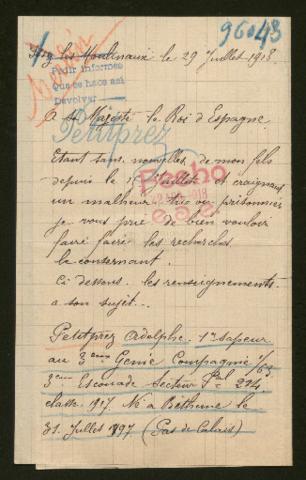 96043
Issy les Moulineaux le 29 Juillet 1918.
Pedir informes
Que se hace asi
Devolver
A sa Majesté le Roi d'Espagne.
Petitprez
Etant sans nouvelles de mon fils
depuis le 15 Juillet et craignant
un malheur, tué ou prisonnier
je vous prie de bien vouloir
faire faire les recherches
le concernant.
Ci dessous les renseignements
a son sujet...
Petitprez Adolphe. 1er sapeur
au 3eme Génie Compagnie 1/63
3eme Escouade Secteur Pal 214
classe 1917. Né a Bethune le
31 Juillet 1897 (Pas de Calais)